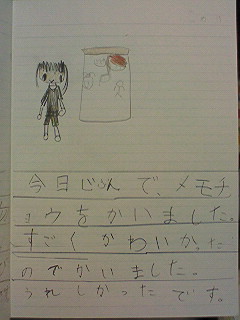 今日じぶんで、メモチ
ョウをかいました。
すごくかわいかった
のでかいました。
うれしかったです。